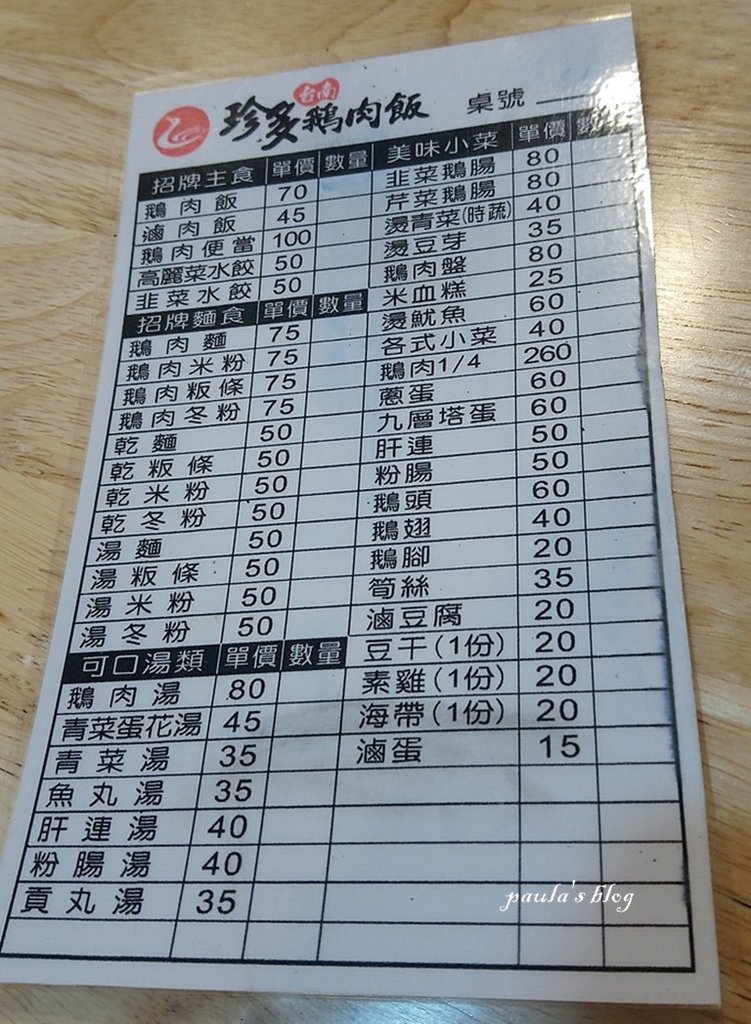 台南
珍多鵝肉飯
桌號
招牌主食 單價 數量
鵝肉飯 70
滷肉飯 45
鵝肉便當 100
高麗菜水餃 50
韭菜水餃 50
招牌麵食 單價 數量
鵝肉麵 75
鵝肉米粉 75
鵝肉粄條 75
鵝肉冬粉 75
乾麵 50
乾粄條 50
乾米粉 50
乾冬粉 50
湯麵 50
湯粄條 50
湯米粉 50
湯冬粉 50
可口湯類 單價 數量
鵝肉湯 80
青菜蛋花湯 45
青菜湯 35
魚丸湯 35
肝連湯 40
粉腸湯 40
貢丸湯 35
美味小菜 單價 數量
韭菜鵝腸 80
芹菜鵝腸 80
燙青菜(時蔬) 40
燙豆芽 35
鵝肉盤 80
米血糕 25
燙魷魚 60
各式小菜 40
鵝肉1/4 260
蔥蛋 60
九層塔蛋 60
肝連 50
粉腸 50
鵝頭 60
鵝翅 40
鵝腳 20
筍絲 35
滷豆腐 20
豆干(1份) 20
素雞(1份) 20
海帶(1份) 20
滷蛋 15
paula's blog